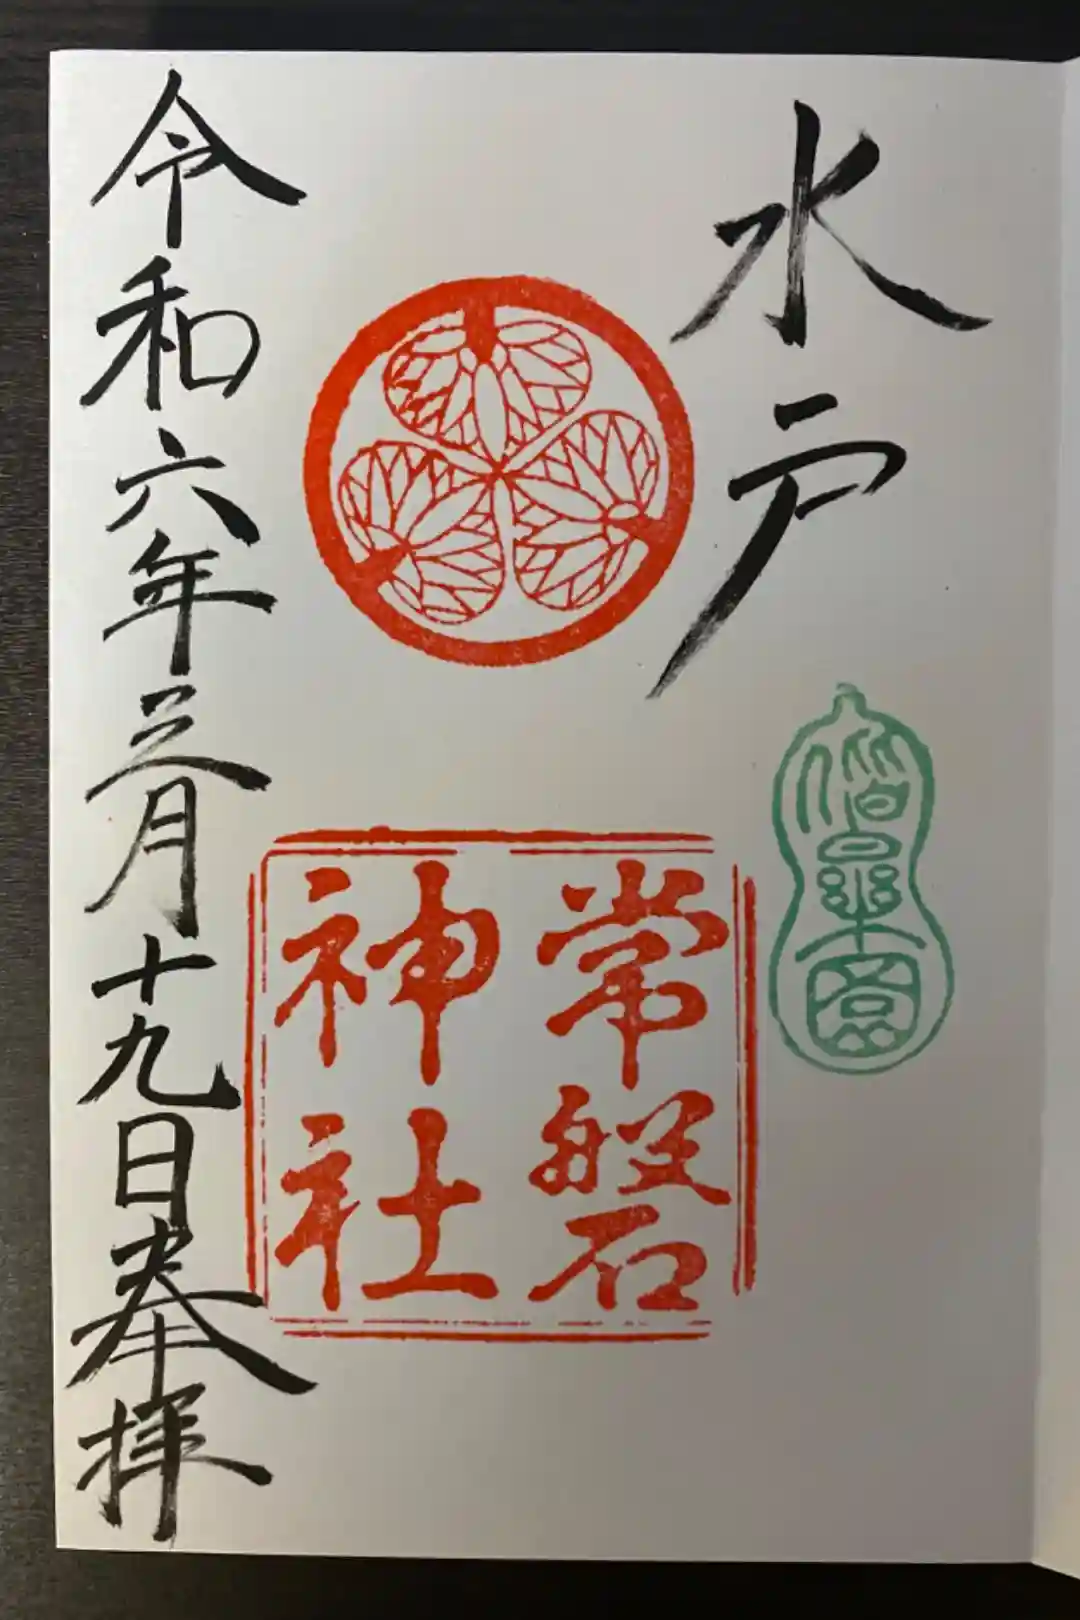 水戸
偕樂園
常磐
神社
令和六年三月十九日奉拝